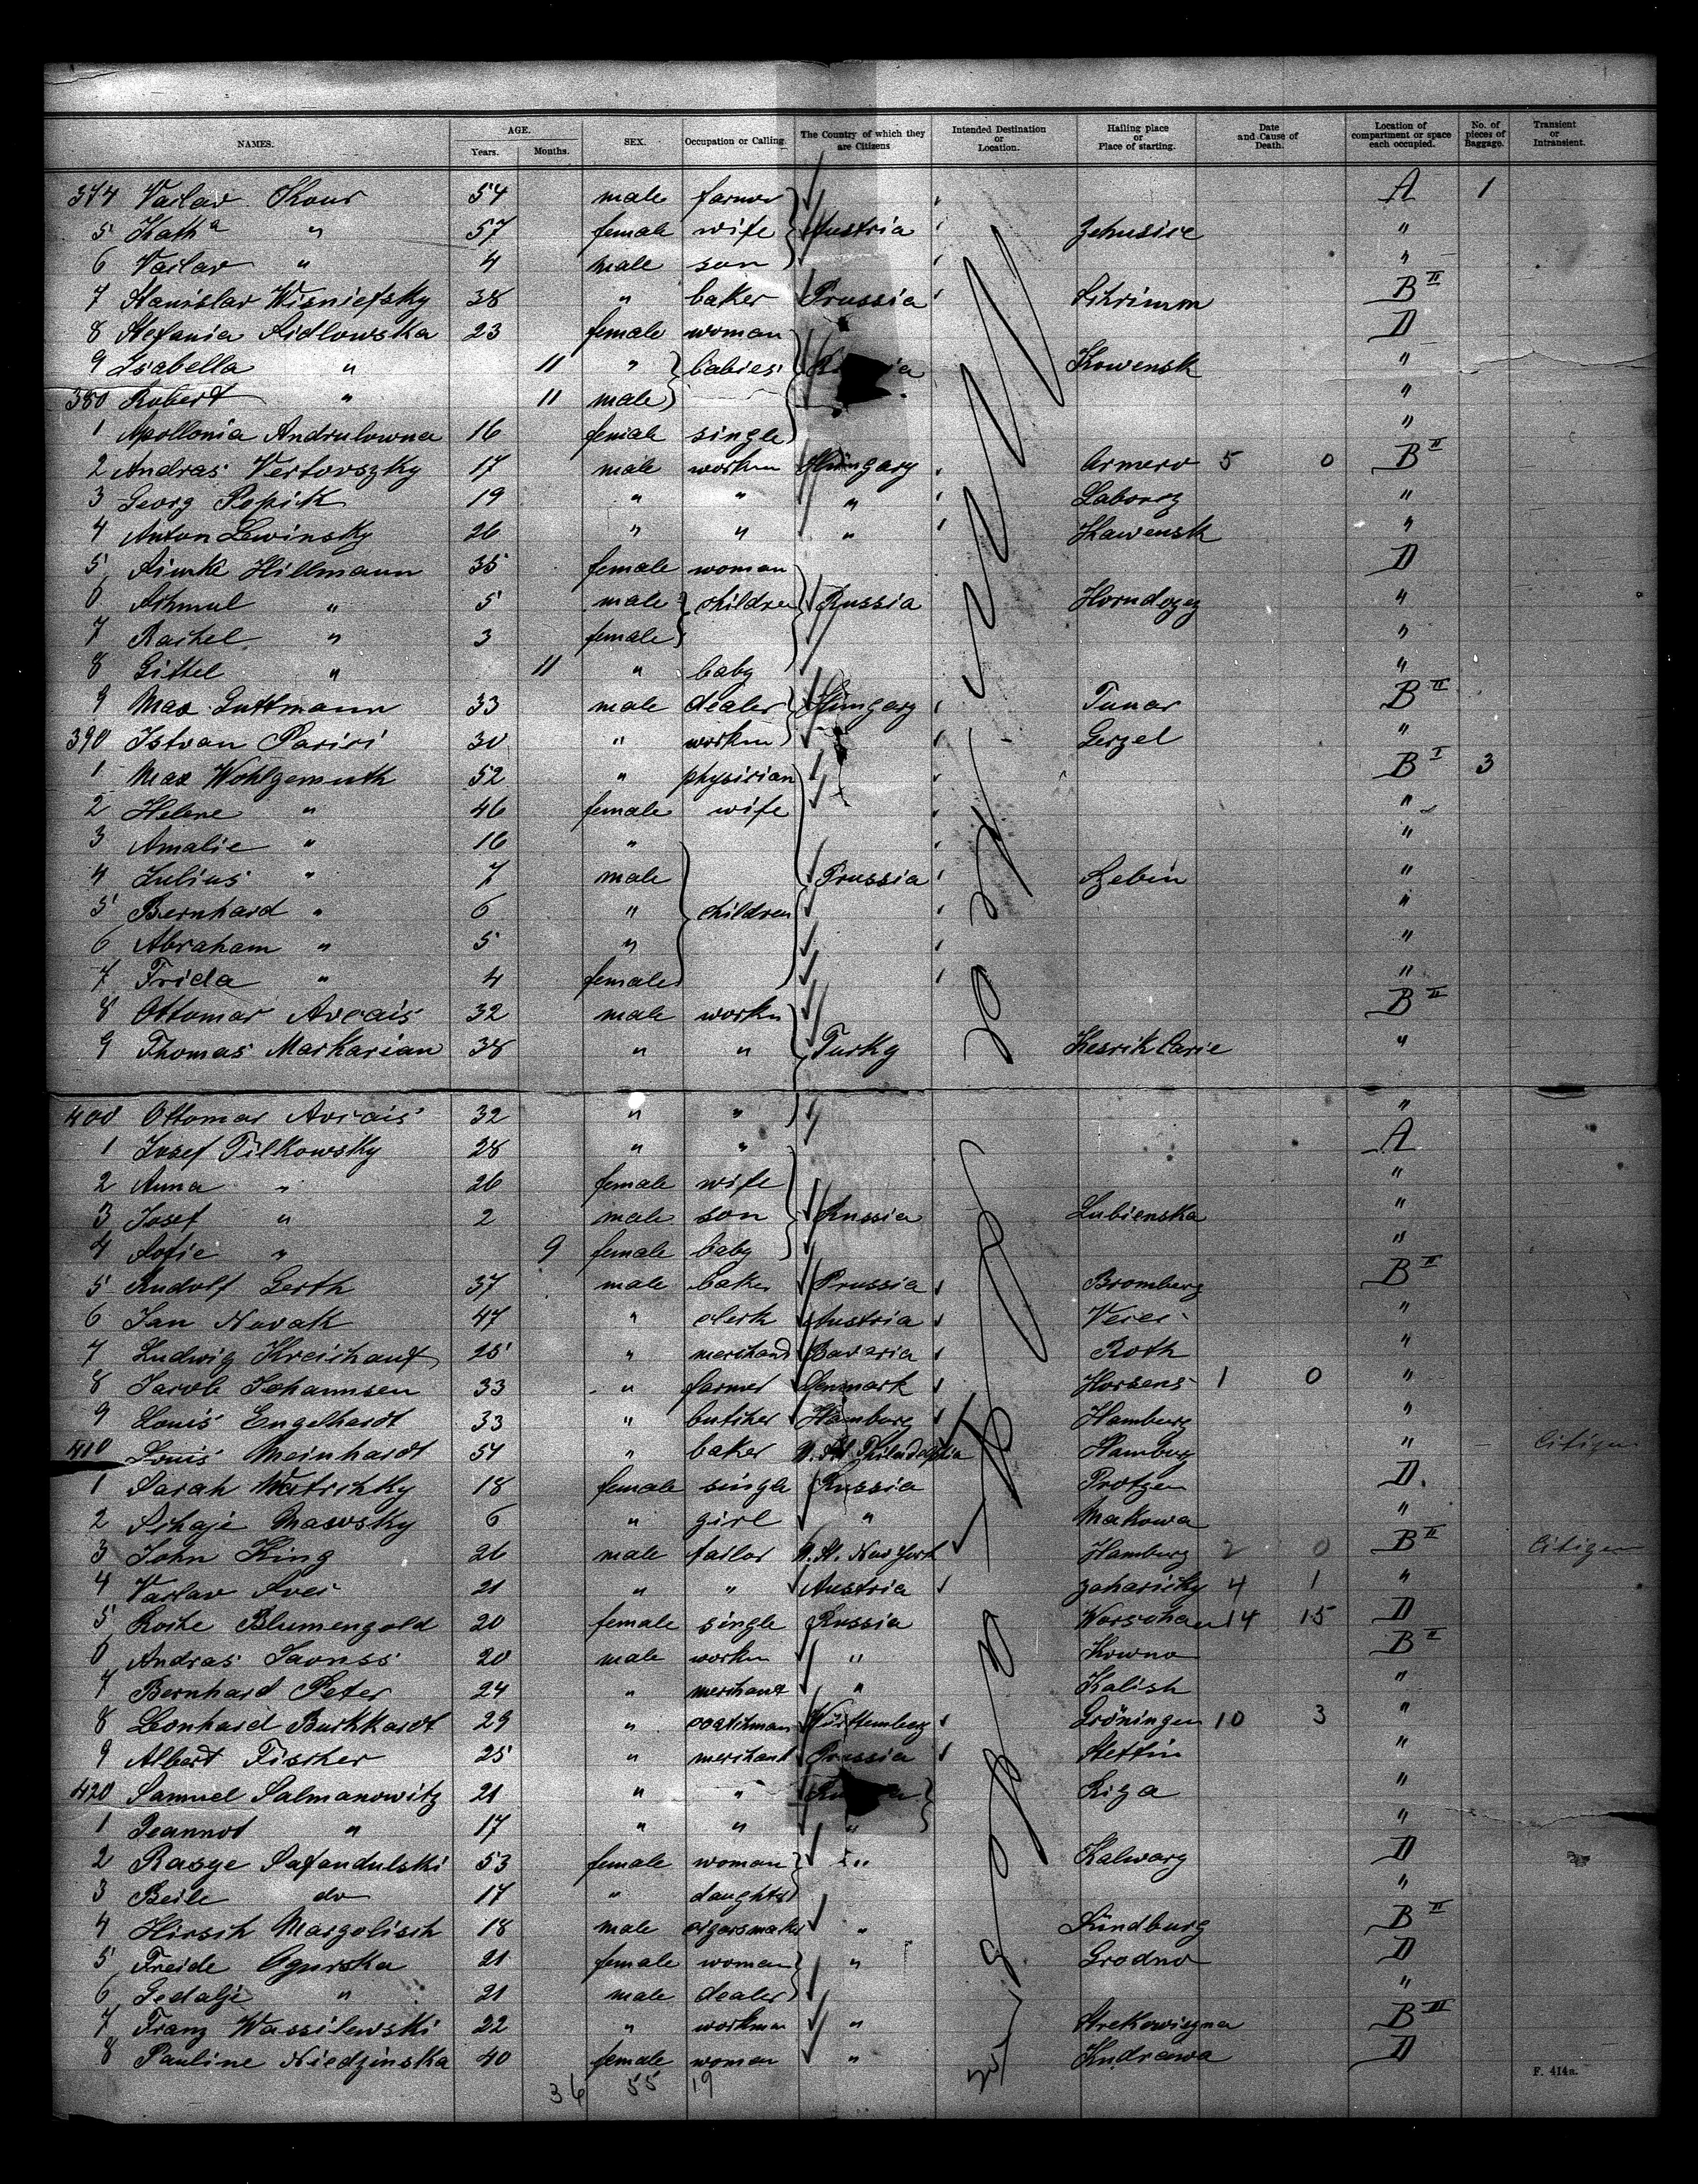 NAMES. AGE. Years. Months. SEX. Occupation or Calling. The Country of which they are Citizens Intended Destination or Location. Hailing place or Place of starting. Date and Cause of Death. Location of compartment or space each occupied. No. of pieces of Baggage. Transient or Intransient.
374 Vaclav Kour 54 male farmer A 1
5 Kath a " 57 female wife Austria Zehusice "
6 Vaclav " 4 male son "
7 Stanislav Wisniefsky 38 " baker Prussia Schrimm B II
8 Stefania Sidlowska 23 female woman D
9 Isabella " 11 " babies Kowensk "
380 Robert " 11 male "
1 Apollonia Andrulowna 16 female single "
2 Andras Vertovszky 17 male workm Hungary Armero 5 0 B II
3 Georg Pepik 19 " " " Laborcz "
4 Anton Lewinsky 26 " " " Kawensk "
5 Hillmann 35 female woman D
6 Schmul " 5 male children Russia Horndozez "
7 Rachel " 3 female "
8 Gittel " 11 " baby "
9 Max Guttmann 33 male dealer Hungary Tunar B II
390 Istvan Parisi 30 " workm Gerzel "
1 Max Wohlgemuth 52 " physician B I 3
2 Helene " 46 female wife "
3 Amalie " 16 " "
4 Julius " 7 male Prussia Szebin "
5 Bernhard " 6 " children "
6 Abraham " 5 " "
7 Frida " 4 female "
8 Ottomar Avcais 32 male workm B II
9 Thomas Markarian 38 " " Turky Kesrik Carie "
400 Ottomar Avcais 32 " " "
1 Josef Pilkowsky 28 " " A
2 Anna " 26 female wife "
3 Josef " 2 male son Russia Lubienska "
4 Sofie " 9 female baby "
5 Rudolf Gerth 37 male baker Prussia Bromberg B II
6 Jan Novak 47 " clerk Austria "
7 Ludwig Kreichauf 25 " merchand Bavaria Roth "
8 Jacob Johannsen 33 " farmer Denmark Horsens 1 0 "
9 Louis Engelhardt 33 " butcher Hamburg Hamburg "
410 Louis Meinhardt 54 " baker U. St. Philadelphia Hamburg " Citizen
1 Sarah Watrichky 18 female single Russia Protzen D.
2 Schaje Masvsky 6 " girl " Makowa "
3 John King 26 male tailor U. St. New York Hamburg 2 0 B II Citizen
4 Vaclav 21 " " Austria 4 1 "
5 Roche Blumengold 20 female single Russia Warschau 14 15 D
6 Andras Saonss 20 male workm " Kowno B II
7 Bernhard Peter 24 " merchant " Kalish "
8 Leonhard Burkhardt 29 " coatchman Württemberg Gröningen 10 3 "
9 Albert Fischer 25 " merchant Prussia Stettin "
420 Samuel Salmanowitz 21 " " Riga "
1 Jeannot " 17 " " " "
2 Rasye Safandulski 53 female woman " Kalwary D
3 Beile do 17 " daughter "
4 Hirsch Margolisch 18 male cigarsmaker " Sündburg B II
5 Freide Ogurska 21 female woman " Grodno D
6 Gedalje " 21 male dealer "
7 Franz Wassilewski 22 " workman " Strekowiczna B III
8 Pauline Niedzinska 40 female woman " Kudrawa D
36 55 19
F. 414a.